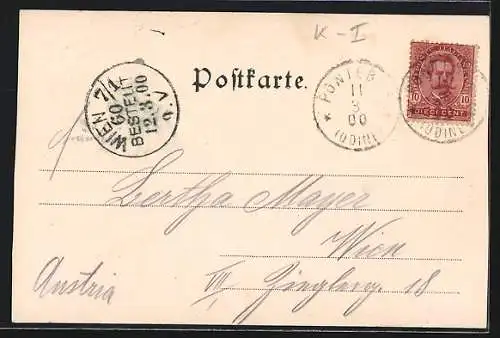 K-I
Postkarte.
WIEN 7/1
60
BESTELLT
12.3.00
9.V
* PONTEB
11
3
00
(UDINE)
10 10
DIECI CENT.
(UDINE)
Bertha Mayer
Wien
VII, Zieglerg. 18
Austria